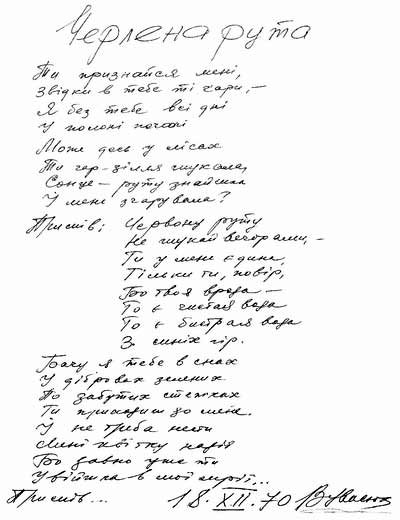 Черлена рута
Ти признайся мені,
Звідки в тебе ті чари, –
Я без тебе всі дні
У полоні печалі
Може десь у лісах
Ти чар-зілля шукала,
Сонце – руту знайшла
І мене зчарувала?
Приспів: Червону руту
Не шукай вечорами, –
Ти у мене єдина,
Тільки ти, повір,
Бо твоя врода –
То є чистая вода
То є бистрая вода
З синіх гір.
Бачу я тебе в снах
У дібровах зелених
По забутих стежках
Ти приходиш до мене.
І не треба нести
Мені квітку надій
Бо давно уже ти
Увійшла в мої мрії...
Приспів...
18.XII.70 В. Івасюк